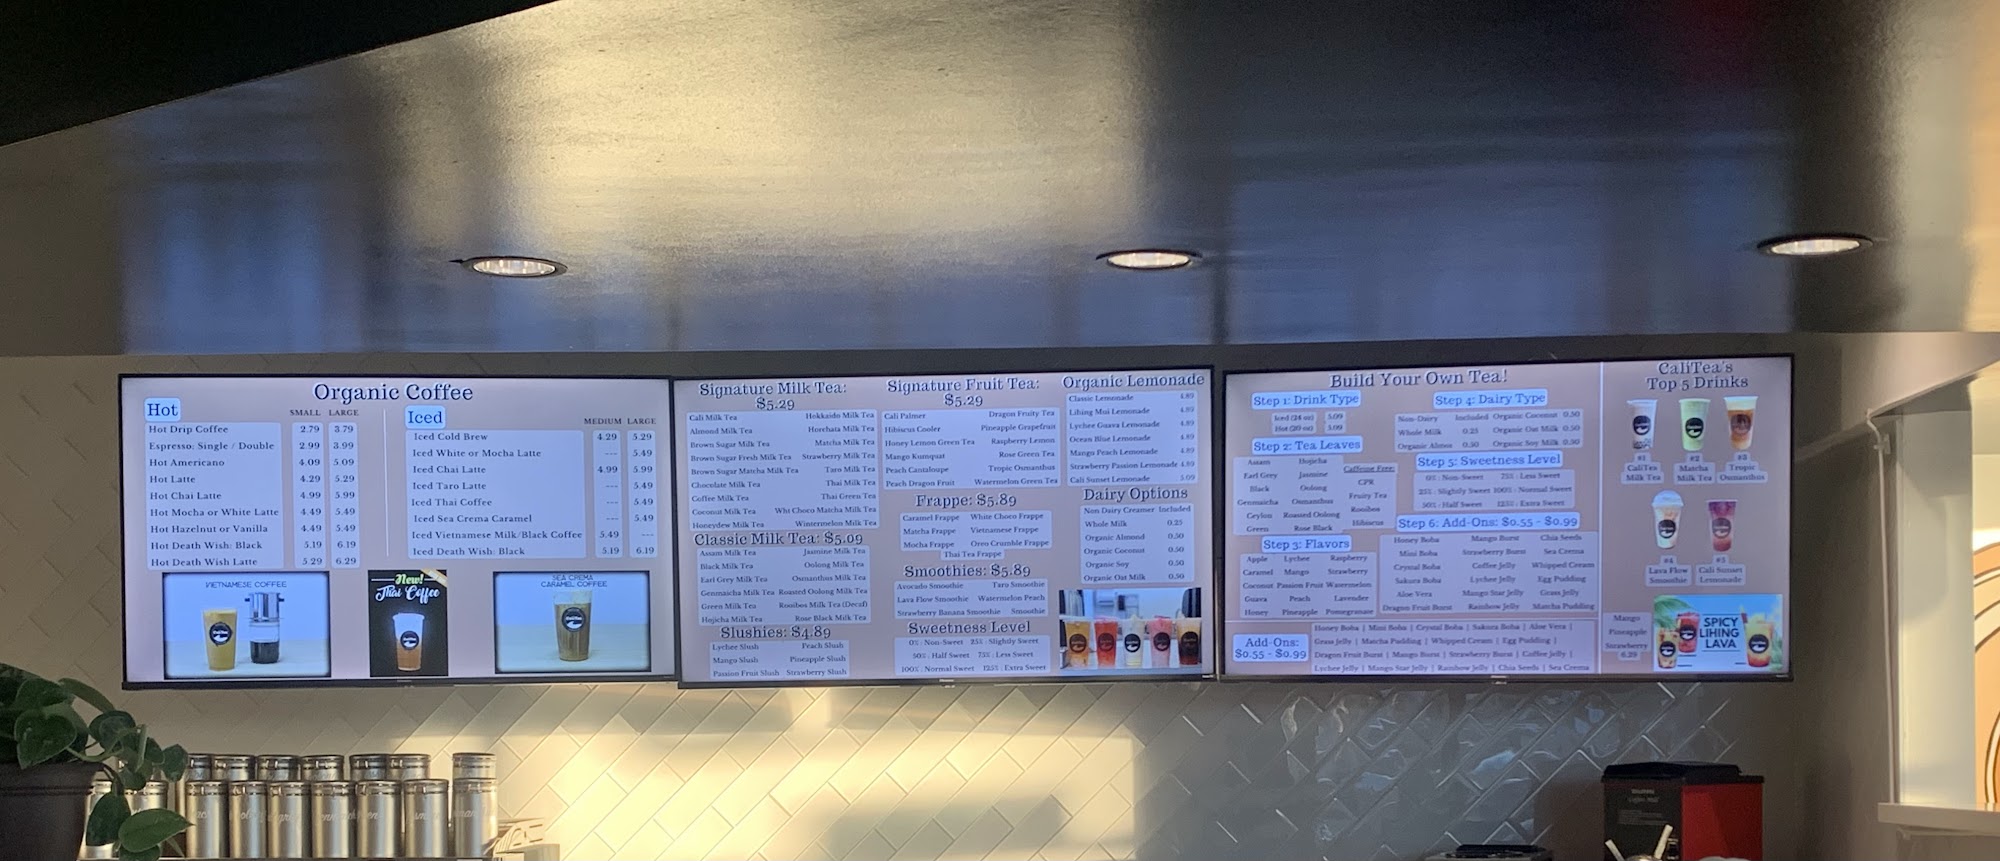 Organic Coffee
Hot
SMALL LARGE
Hot Drip Coffee 2.79 3.79
Espresso: Single / Double 2.99 3.99
Hot Americano 4.09 5.09
Hot Latte 4.29 5.29
Hot Chai Latte 4.99 5.99
Hot Mocha or White Latte 4.49 5.49
Hot Hazelnut or Vanilla 4.49 5.49
Hot Death Wish: Black 5.19 6.19
Hot Death Wish Latte 5.29 6.29
Iced
MEDIUM LARGE
Iced Cold Brew 4.29 5.29
Iced White or Mocha Latte --- 5.49
Iced Chai Latte 4.99 5.99
Iced Taro Latte --- 5.49
Iced Thai Coffee --- 5.49
Iced Sea Crema Caramel --- 5.49
Iced Vietnamese Milk/Black Coffee 5.49 ---
Iced Death Wish: Black 5.19 6.19
VIETNAMESE COFFEE
New!
Thai Coffee
SEA CREMA
CARAMEL COFFEE
Signature Milk Tea:
$5.29
Cali Milk Tea Hokkaido Milk Tea
Almond Milk Tea Horchata Milk Tea
Brown Sugar Milk Tea Matcha Milk Tea
Brown Sugar Fresh Milk Tea Strawberry Milk Tea
Brown Sugar Matcha Milk Tea Taro Milk Tea
Chocolate Milk Tea Thai Milk Tea
Coffee Milk Tea Thai Green Tea
Coconut Milk Tea Wht Choco Matcha Milk Tea
Honeydew Milk Tea Wintermelon Milk Tea
Classic Milk Tea: $5.09
Assam Milk Tea Jasmine Milk Tea
Black Milk Tea Oolong Milk Tea
Earl Grey Milk Tea Osmanthus Milk Tea
Genmaicha Milk Tea Roasted Oolong Milk Tea
Green Milk Tea Rooibos Milk Tea (Decaf)
Hojicha Milk Tea Rose Black Milk Tea
Slushies: $4.89
Lychee Slush Peach Slush
Mango Slush Pineapple Slush
Passion Fruit Slush Strawberry Slush
Signature Fruit Tea:
$5.29
Cali Palmer Dragon Fruity Tea
Hibiscus Cooler Pineapple Grapefruit
Honey Lemon Green Tea Raspberry Lemon
Mango Kumquat Rose Green Tea
Peach Cantaloupe Tropic Osmanthus
Peach Dragon Fruit Watermelon Green Tea
Frappe: $5.89
Caramel Frappe White Choco Frappe
Matcha Frappe Vietnamese Frappe
Mocha Frappe Oreo Crumble Frappe
Thai Tea Frappe
Smoothies: $5.89
Avocado Smoothie Taro Smoothie
Lava Flow Smoothie Watermelon Peach
Strawberry Banana Smoothie Smoothie
Sweetness Level
0%: Non-Sweet 25%: Slightly Sweet
50%: Half Sweet 75%: Less Sweet
100%: Normal Sweet 125%: Extra Sweet
Organic Lemonade
Classic Lemonade 4.89
Lihing Mui Lemonade 4.89
Lychee Guava Lemonade 4.89
Ocean Blue Lemonade 4.89
Mango Peach Lemonade 4.89
Strawberry Passion Lemonade 4.89
Cali Sunset Lemonade 5.09
Dairy Options
Non Dairy Creamer Included
Whole Milk 0.25
Organic Almond 0.50
Organic Coconut 0.50
Organic Soy 0.50
Organic Oat Milk 0.50
Build Your Own Tea!
Step 1: Drink Type
Iced (24 oz) 5.09
Hot (20 oz) 5.09
Step 2: Tea Leaves
Assam Hojicha
Earl Grey Jasmine
Black Oolong
Genmaicha Osmanthus
Ceylon Roasted Oolong
Green Rose Black
Caffeine Free:
CPR
Fruity Tea
Rooibos
Hibiscus
Step 3: Flavors
Apple Lychee Raspberry
Caramel Mango Strawberry
Coconut Passion Fruit Watermelon
Guava Peach Lavender
Honey Pineapple Pomegranate
Step 4: Dairy Type
Non-Dairy Included Organic Coconut 0.50
Whole Milk 0.25 Organic Oat Milk 0.50
Organic Almon 0.50 Organic Soy Milk 0.50
Step 5: Sweetness Level
0%: Non-Sweet 75%: Less Sweet
25%: Slightly Sweet 100%: Normal Sweet
50%: Half Sweet 125%: Extra Sweet
Step 6: Add-Ons: $0.55 - $0.99
Honey Boba Mango Burst Chia Seeds
Mini Boba Strawberry Burst Sea Crema
Crystal Boba Coffee Jelly Whipped Cream
Sakura Boba Lychee Jelly Egg Pudding
Aloe Vera Mango Star Jelly Grass Jelly
Dragon Fruit Burst Rainbow Jelly Matcha Pudding
Add-Ons:
$0.55 - $0.99
Honey Boba | Mini Boba | Crystal Boba | Sakura Boba | Aloe Vera |
Grass Jelly | Matcha Pudding | Whipped Cream | Egg Pudding |
Dragon Fruit Burst | Mango Burst | Strawberry Burst | Coffee Jelly |
Lychee Jelly | Mango Star Jelly | Rainbow Jelly | Chia Seeds | Sea Crema
CaliTea's
Top 5 Drinks
#1 #2 #3
CaliTea Matcha Tropic
Milk Tea Milk Tea Osmanthus
#4 #5
Lava Flow Cali Sunset
Smoothie Lemonade
Mango
Pineapple
Strawberry
6.39
SPICY
LIHING
LAVA